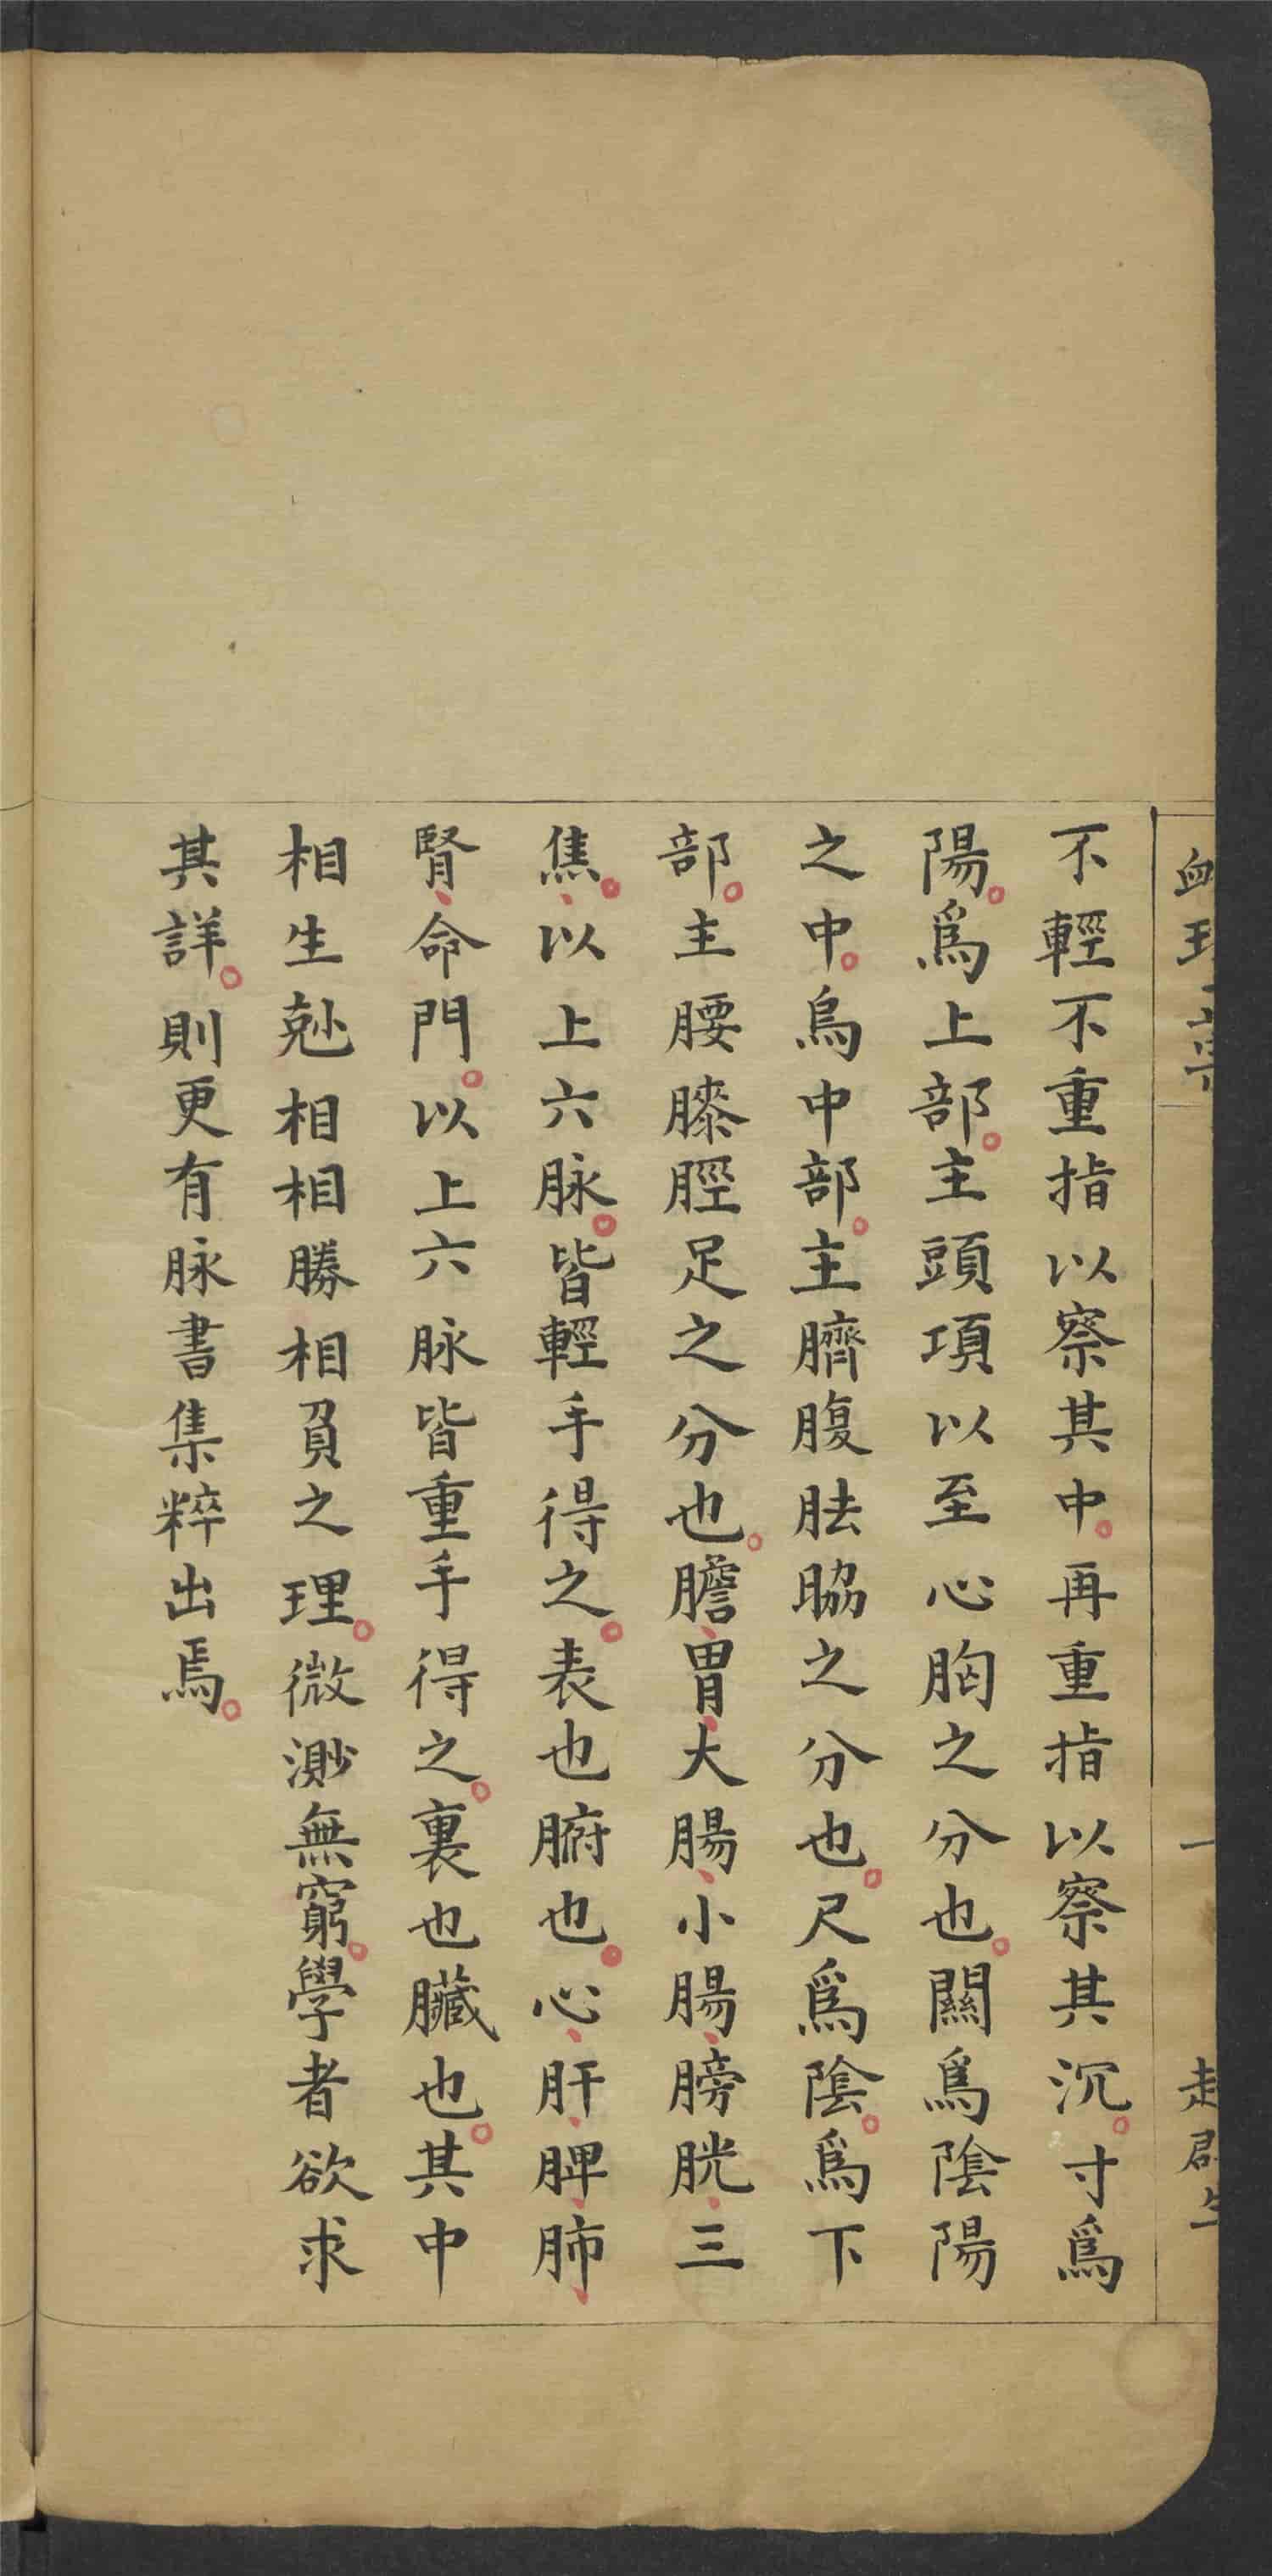 不輕不重指以察其中。再重指以察其沉。寸爲
陽。爲上部。主頭項以至心胸之分也。關爲陰陽
之中。爲中部。主臍腹胠脇之分也。尺爲陰。爲下
部。主腰膝脛足之分也。膽、胃、大腸、小腸、膀胱、三
焦。以上六脉。皆輕手得之。表也腑也。心、肝、脾、肺、
腎、命門。以上六脉皆重手得之。裏也臟也。其中
相生尅相相勝相負之理。微渺無窮。學者欲求
其詳。則更有脉書集粹出焉。